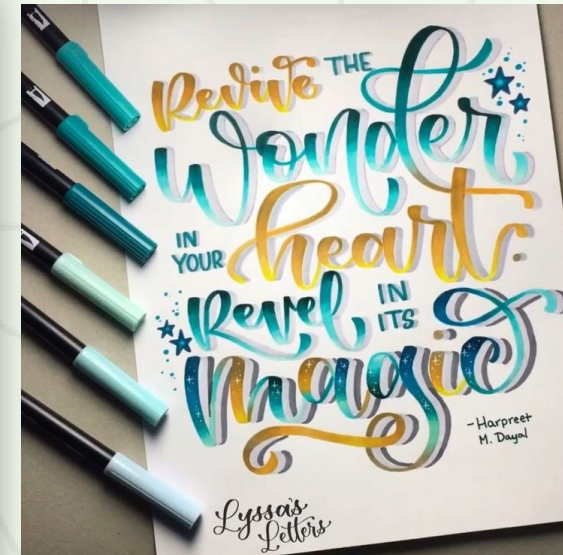 Revive THE
Wonder
IN
YOUR
heart.
Revel IN
ITS
magic
-Harpreet
M. Dayal
Lyssa's
Letters